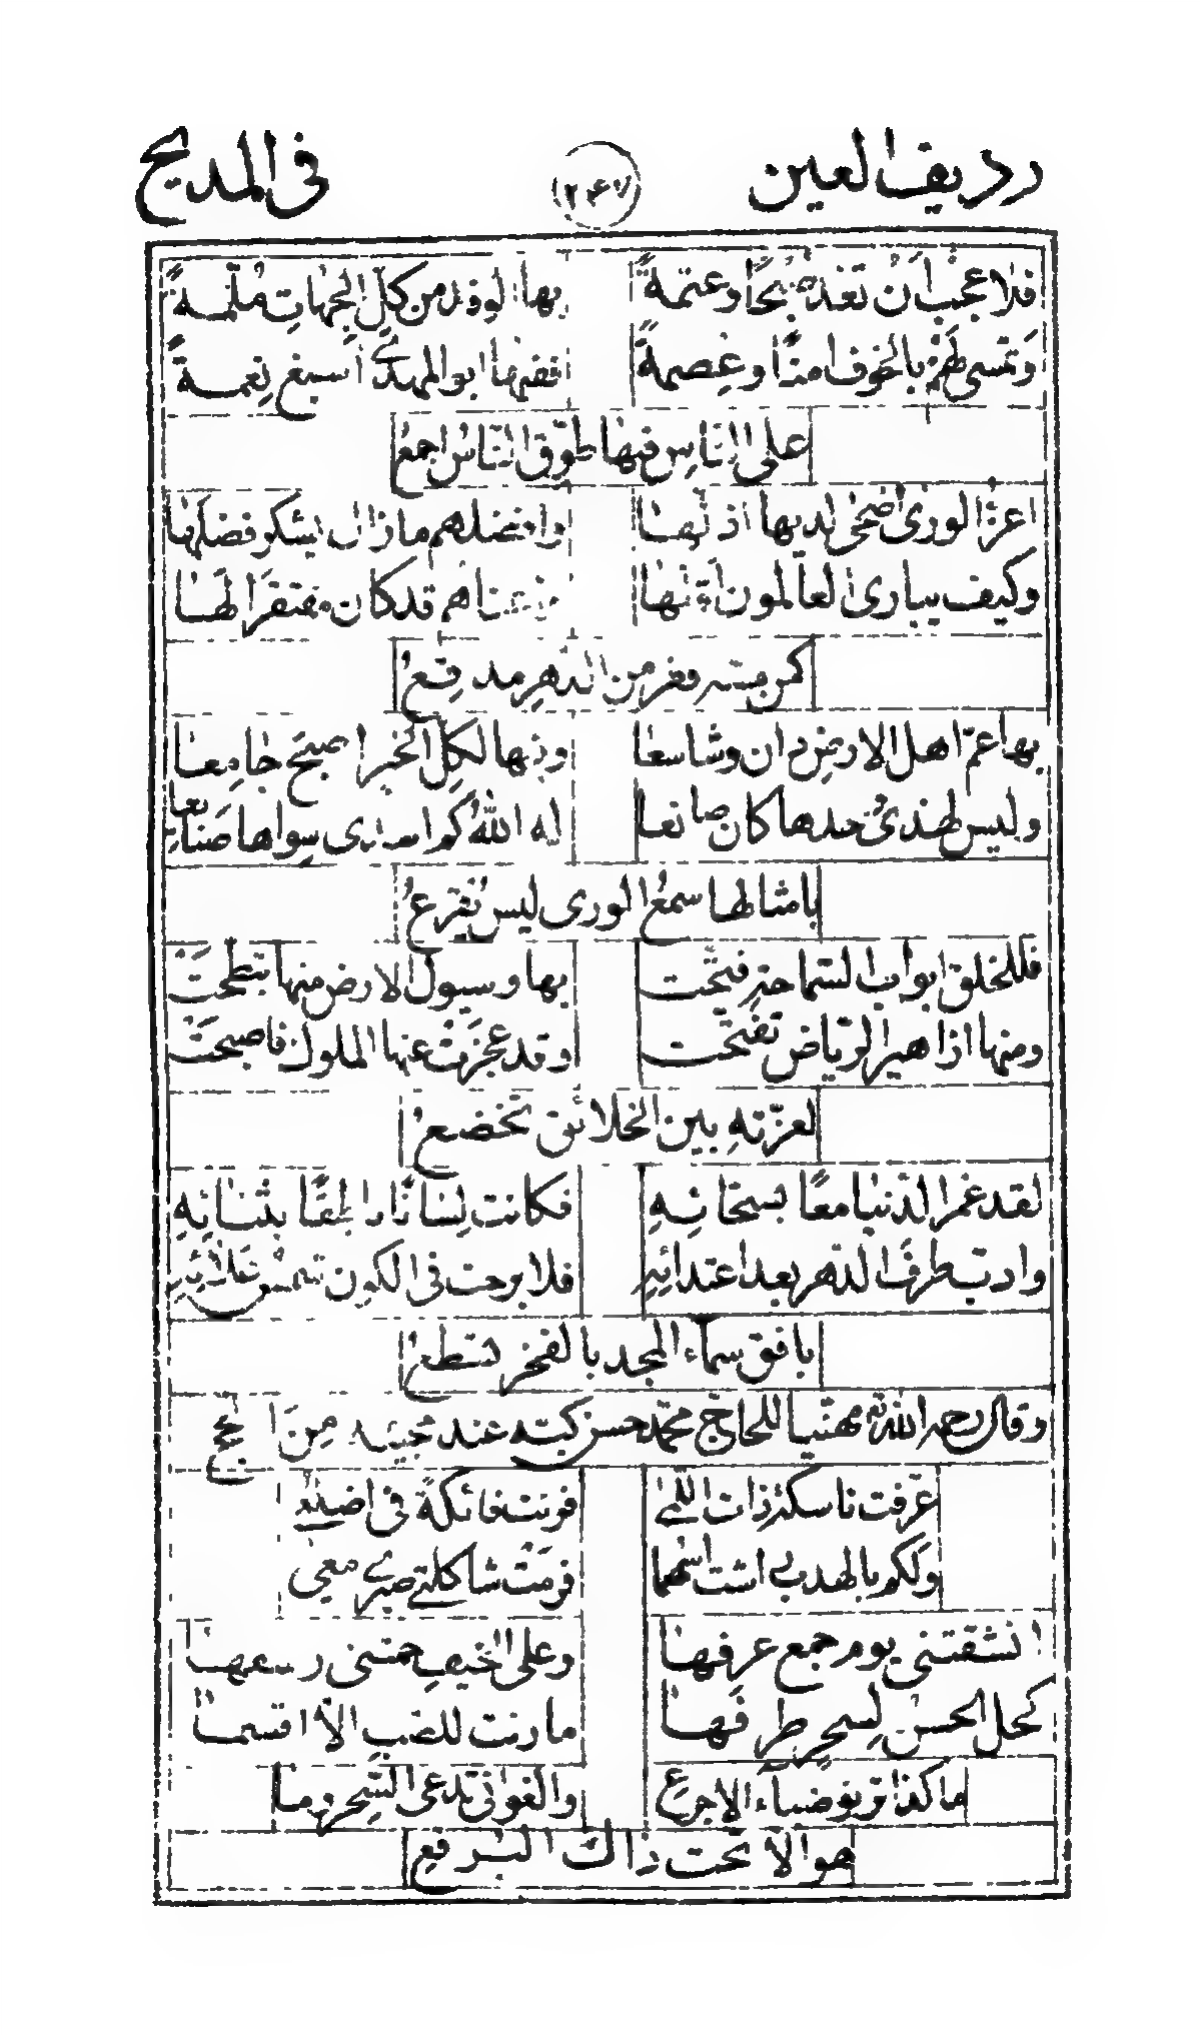 رديف العين ٢٤٧ في المديح
فلا عجب ان تغد نجحًا وعتمةً بها الوفد من كل الجهات ملمةً
وتمسي لهم بالخوف امنًا وعصمةً ففيها ابو المهدي اسبغ نعمةً
على الناس فيها طوق الناس اجمعُ
اعز الورى اضحى لديها اذلها وافضلهم ما زال يشكر فضلها
وكيف يباري العالمون اقلها اغناهم قد كان مفتقرا لها
فقر من الدهر مدقعُ
بها عم اهل الارض دان وشاسعا وفيها لكل الخير اصبح جامعا
وليس لهذي ضدها كان صانعا له الله كم اسدى سواها صنايعا
بامثالها سمع الورى ليس تقرعُ
فللخلق ابواب السماحة فتحت بها وسيول الارض منها تبطحت
ومنها ازاهير الرياض تفتحت وقد عجزت عنها الملوك فاصبحت
لعزته بين الخلائق تخضعُ
لقد غمر الدنيا معًا بسخائه فكانت لسانًا ناطقًا بثنائه
وادب طرف الدهر بعد اعتدائه فلا برحت في الكون شمس علائه
بافق سماء المجد بالفخر تسطعُ
وقال رحمه الله مهنيا للحاج محمد حسن كبه عند مجيئه من الحج
عرفت ناسكة ذات اللمى فرنت فاتكة في اضلعي
ولكم بالهدب اشت اسهما فرمت شاكلتي صبري معي
انشقتني يوم جمع عرفها وعلى الخيف حمتني رشفها
كحل الحسن لسحر طرفها ما رنت للضب الا اقسما
ما كذا ترنو ضباء الاجرع والغواني تدعي السحر وما
هو الا تحت ذاك البرقعِ